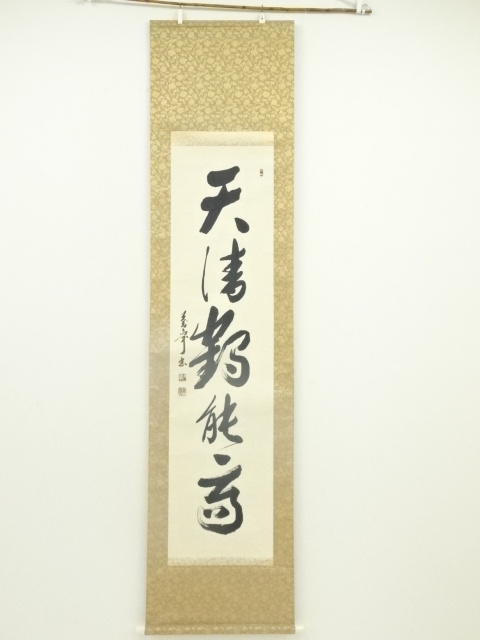 天清鶴能高